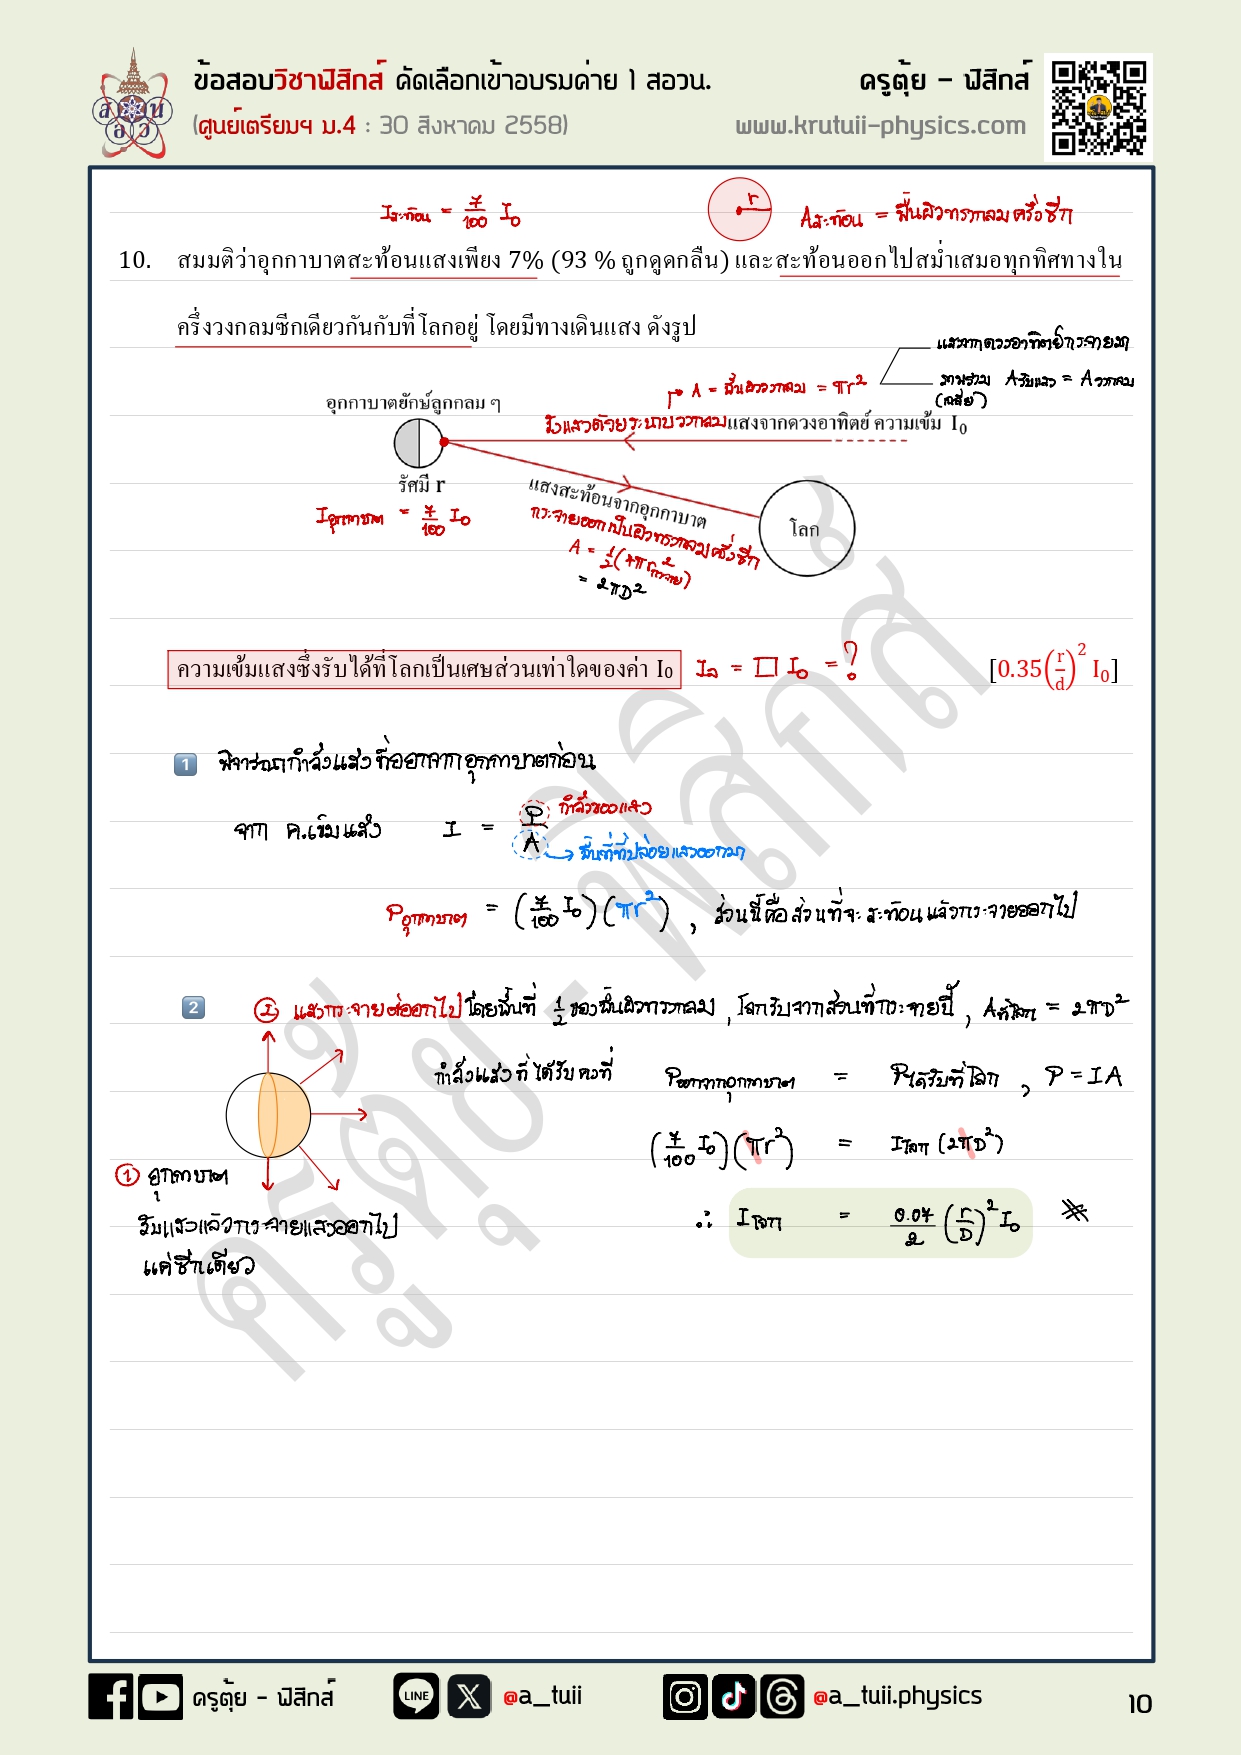 ข้อสอบวิชาฟิสิกส์ คัดเลือกเข้าอบรมค่าย 1 สอวน.
ครูตุ้ย - ฟิสิกส์
(ศูนย์เตรียมฯ ม.4 : 30 สิงหาคม 2558)
www.krutuii-physics.com
สอวน
Iสะท้อน = 7/100 I₀
r
Aสะท้อน = พื้นผิวทรงกลมครึ่งซีก
10. สมมติว่าอุกกาบาตสะท้อนแสงเพียง 7% (93 % ถูกดูดกลืน) และสะท้อนออกไปสม่ำเสมอทุกทิศทางใน
ครึ่งวงกลมซีกเดียวกันกับที่โลกอยู่ โดยมีทางเดินแสง ดังรูป
แสงจากดวงอาทิตย์กระจายมา
A = พื้นผิววงกลม = πr²
Aรับแสง = Aวงกลม
อุกกาบาตยักษ์ลูกกลม ๆ
รับแสงด้วยระนาบวงกลม
แสงจากดวงอาทิตย์ ความเข้ม I₀
รัศมี r
แสงสะท้อนจากอุกกาบาต
โลก
Iอุกกาบาต = 7/100 I₀
กระจายออกเป็นผิวทรงกลมครึ่งซีก
A = 1/2 (4πr²กระจาย)
= 2πD²
ความเข้มแสงซึ่งรับได้ที่โลกเป็นเศษส่วนเท่าใดของค่า I₀
= □ I₀ = ?
[0.35(r/d)² I₀]
1 พิจารณากำลังแสงที่ออกจากอุกกาบาตก่อน
จาก ค.เข้มแสง I = P/A
กำลังของแสง
พื้นที่ที่ปล่อยแสงออกมา
Pอุกกาบาต = (7/100 I₀)(πr²) , ส่วนนี้คือส่วนที่จะสะท้อนแล้วกระจายออกไป
2 ② แสงกระจายต่อออกไปโดยพื้นที่ 1/2 ของพื้นผิวทรงกลม , โลกรับจากส่วนที่กระจายนี้ , Aที่โลก = 2πD²
กำลังแสงที่ได้รับคงที่ Pออกจากอุกกาบาต = Pได้รับที่โลก , P = IA
(7/100 I₀)(πr²) = Iโลก (2πD²)
① อุกกาบาต
รับแสงแล้วกระจายแสงออกไป
แค่ซีกเดียว
∴ Iโลก = 0.07/2 (r/D)² I₀
ครูตุ้ย - ฟิสิกส์
ครูตุ้ย - ฟิสิกส์
LINE
@a_tuii
@a_tuii.physics
10